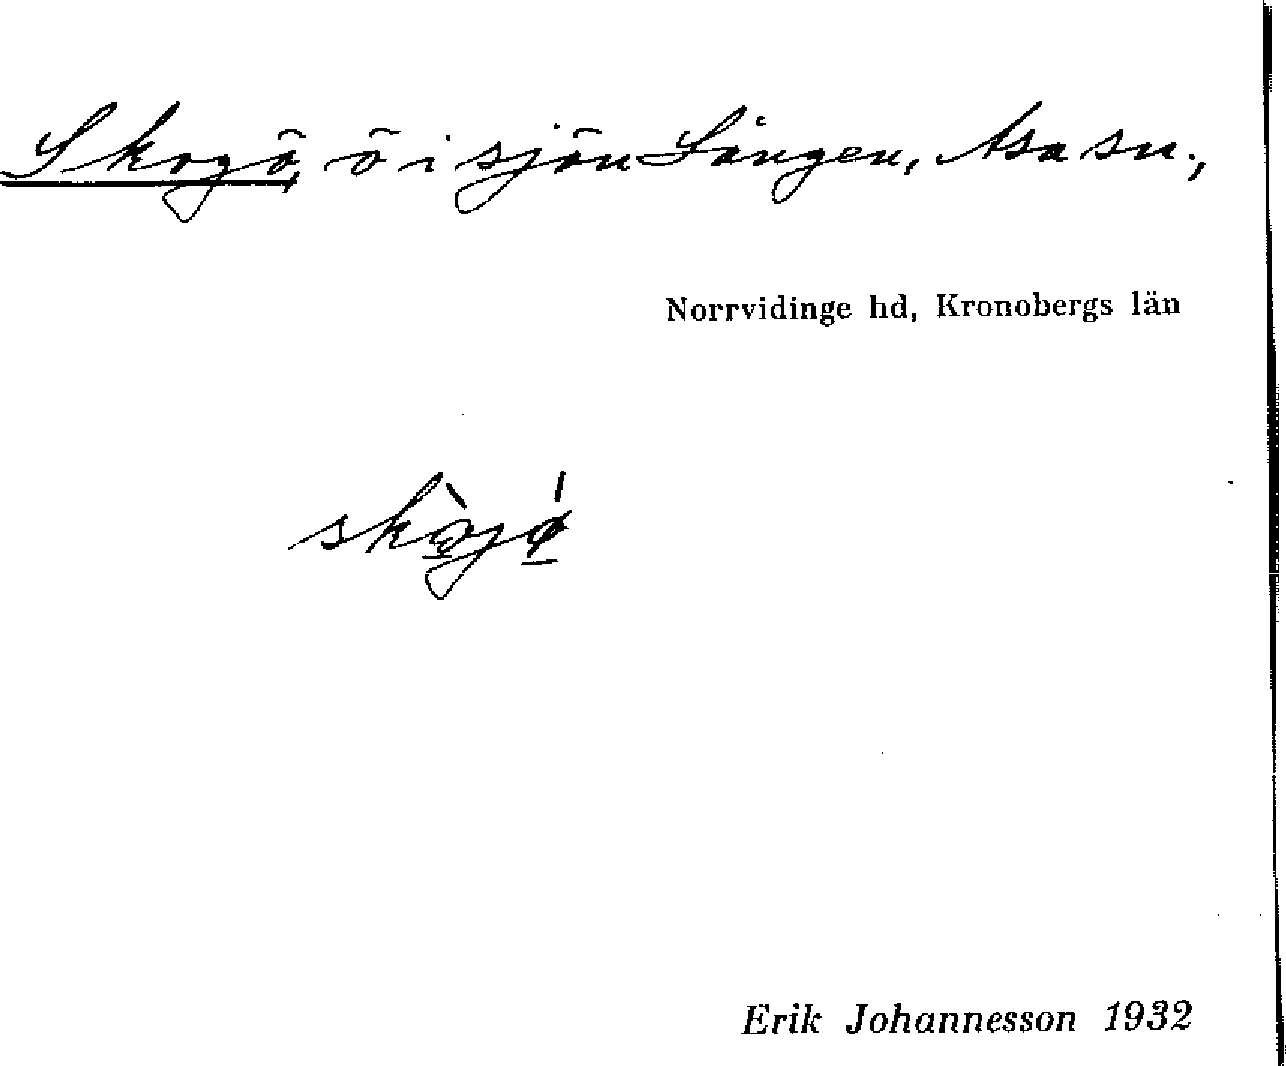 Skogö, ö i sjön Lången, Asa sn.,
Norrvidinge hd, Kronobergs län
Erik Johannesson 1932